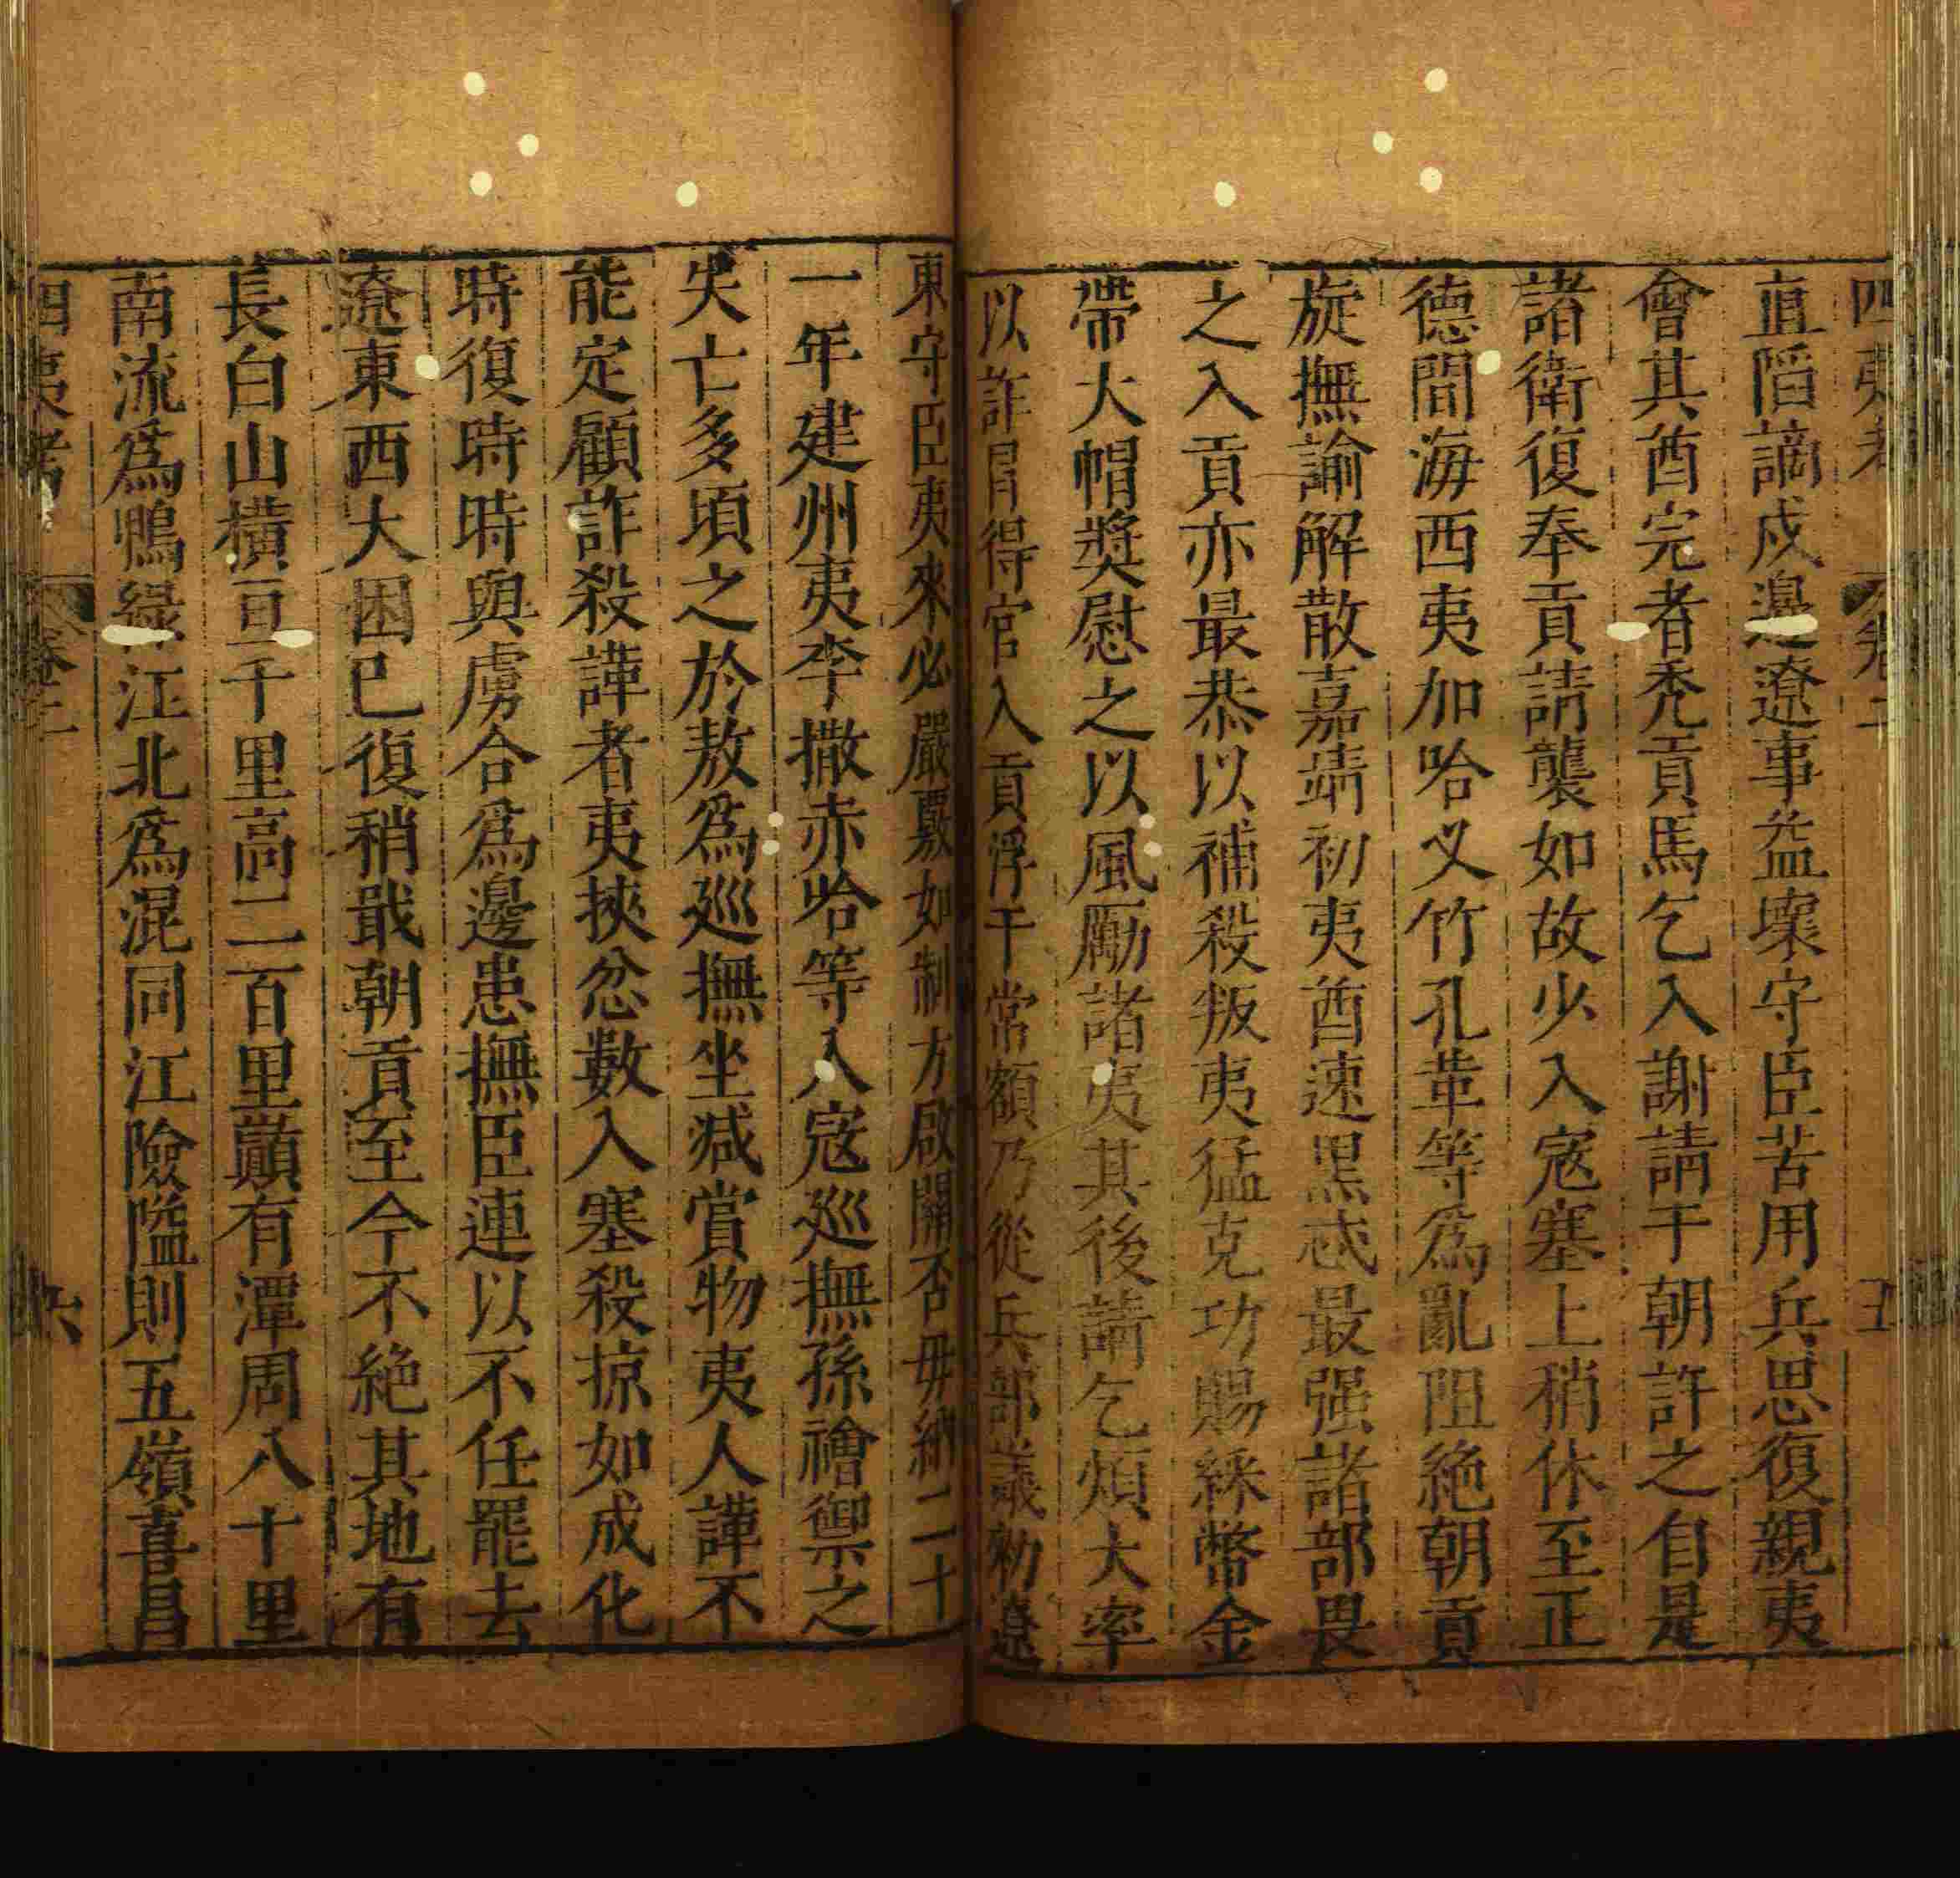 四夷考 卷二 五
直陷謫戍邊遼事益壞守臣苦用兵思復親夷
會其酋完者禿貢馬乞入謝請于朝許之自是
諸衛復奉貢請襲如故少入寇塞上稍休至正
德間海西夷加哈义竹孔革等爲亂阻絶朝貢
旋撫諭解散嘉靖初夷酋速黑忒最强諸部畏
之入貢亦最恭以補殺叛夷猛克功賜綵幣金
帶大帽奬慰之以風勵諸夷其後請乞煩大率
以詐冐得官入貢浮于常額乃從兵部議勑遼
東守臣夷來必嚴覈如制方啟關否毋納二十
一年建州夷李撒赤哈等入寇巡撫孫禬禦之
失亡多頃之於敖爲巡撫坐减賞物夷人譁不
能定顧詐殺譁者夷挾忿數入塞殺掠如成化
時復時時與虜合爲邊患撫臣連以不任罷去
遼東西大困已復稍戢朝貢至今不絶其地有
長白山横亘千里高二百里巔有潭周八十里
南流爲鴨緑江北爲混同江險隘則五嶺喜昌
四夷考 卷二 六